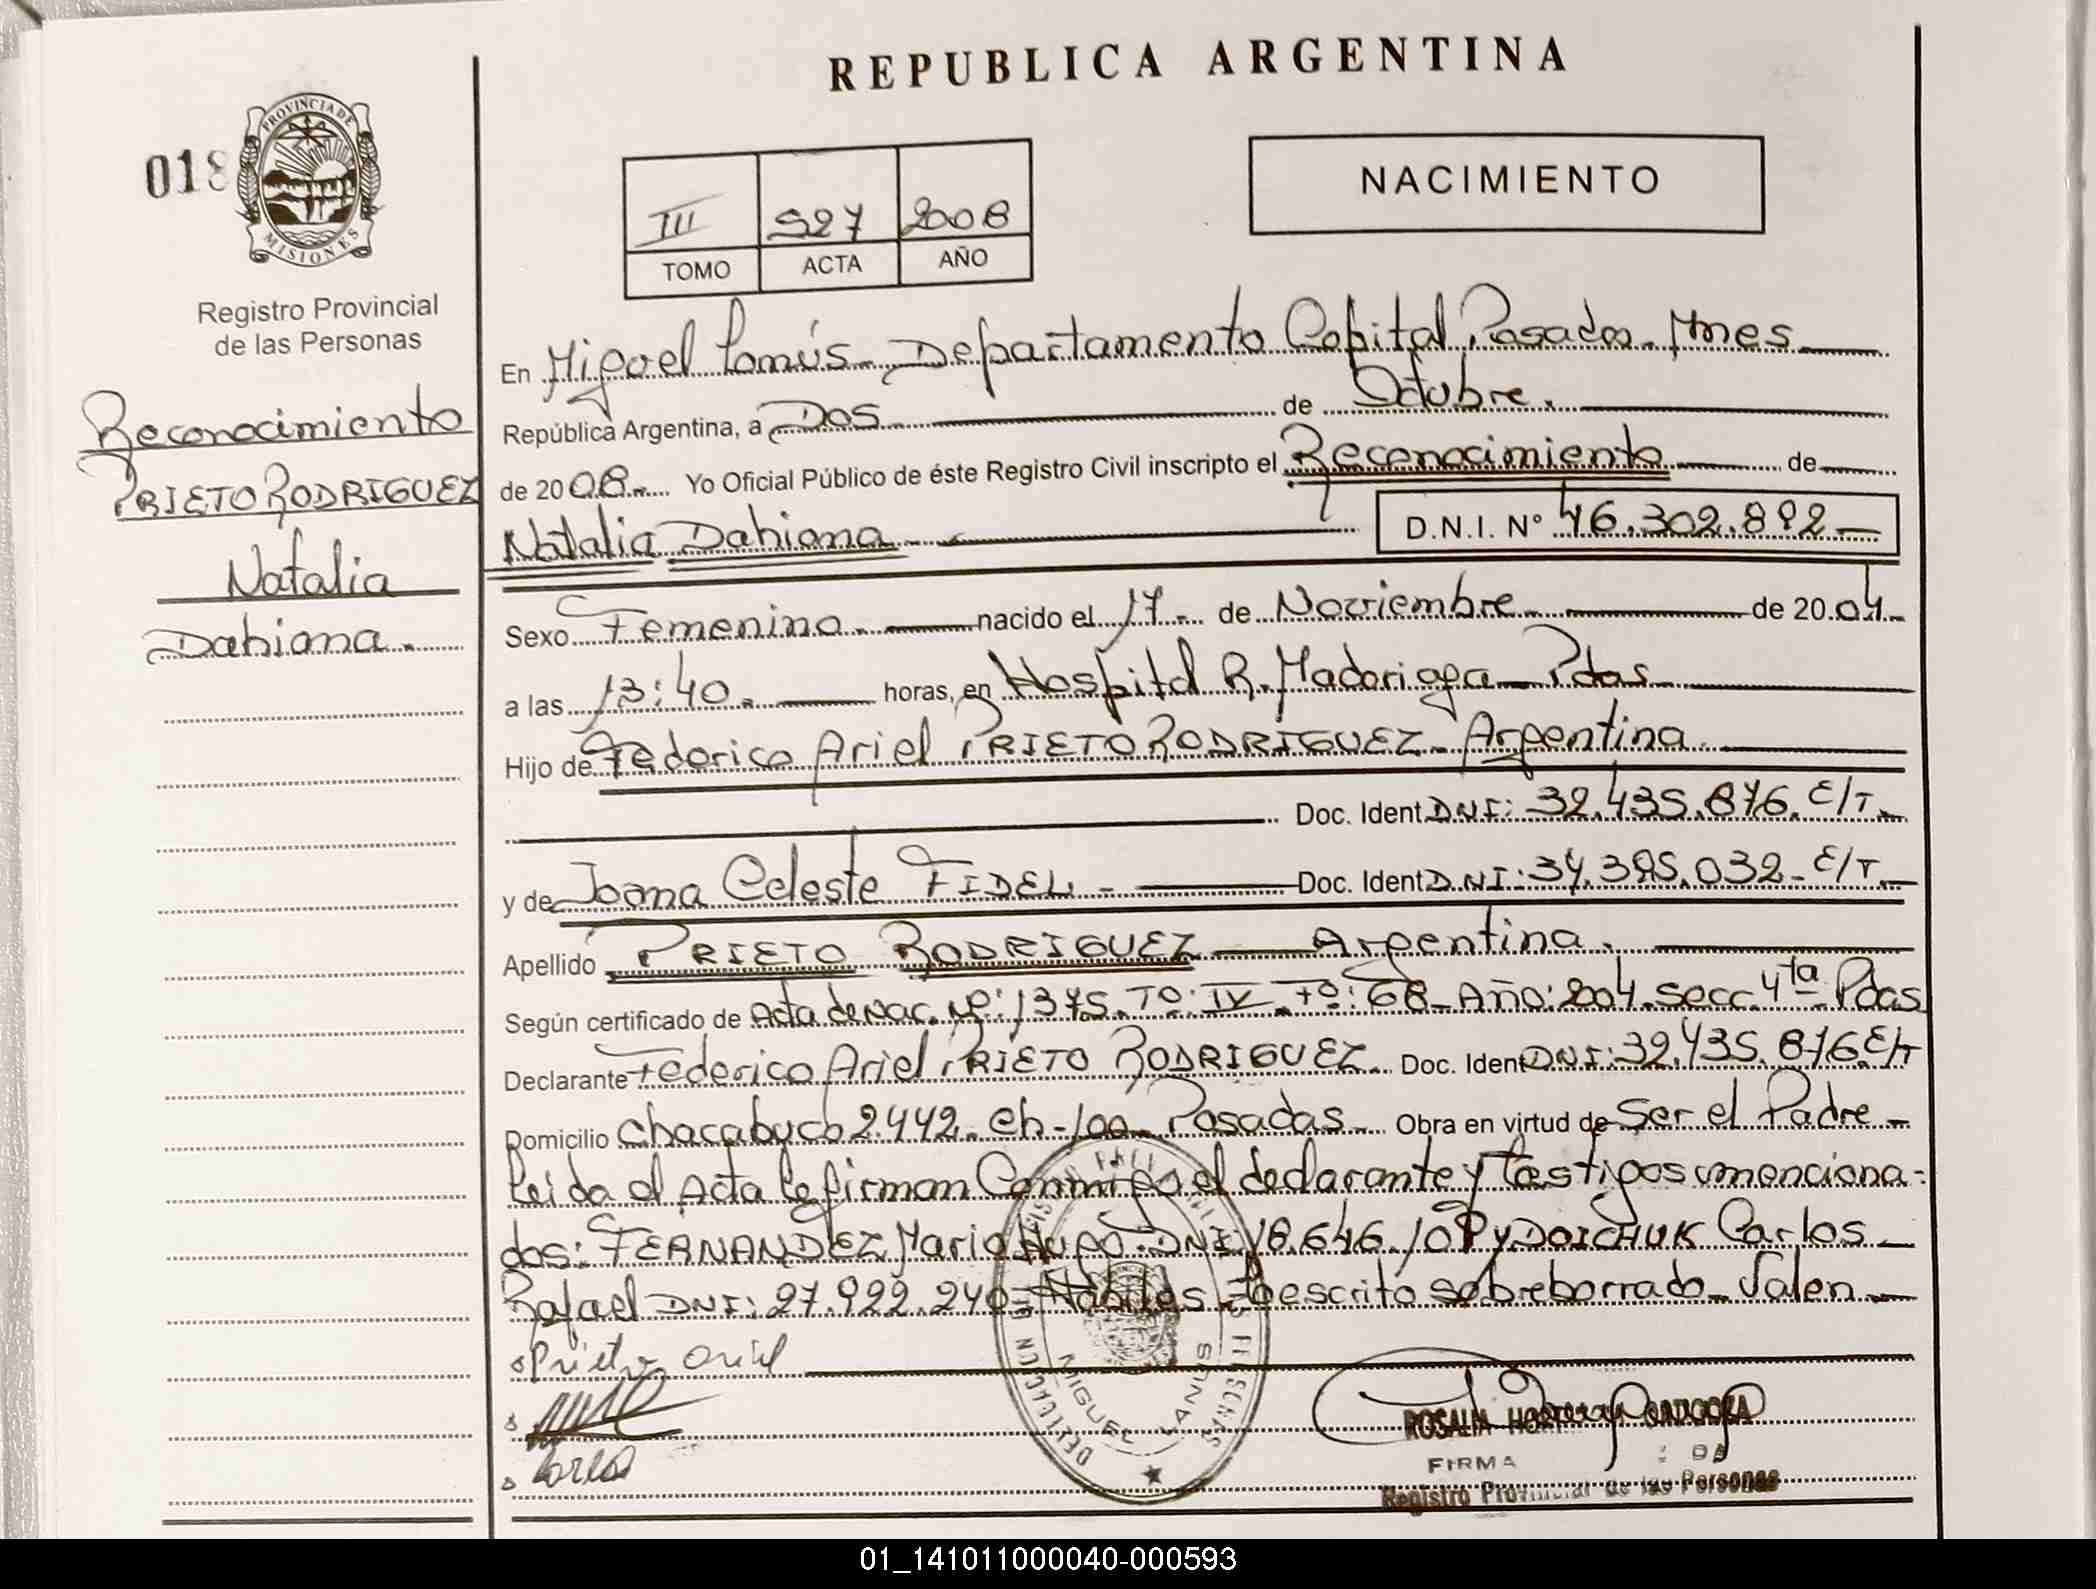 REPUBLICA ARGENTINA
018
PROVINCIA DE
MISIONES
Registro Provincial
de las Personas
III 527 2008
TOMO ACTA AÑO
NACIMIENTO
Reconocimiento
PRIETO RODRIGUEZ
Natalia
Dahiana.
En Miguel Lanús. Departamento Capital, Posadas. Mnes
República Argentina, a Dos de Octubre.
de 2008. Yo Oficial Público de éste Registro Civil inscripto el Reconocimiento de
Natalia Dahiana D.N.I. Nº 46.302.892
Sexo Femenino. nacido el 17. de Noviembre de 2004
a las 13:40. horas, en Hospital R. Madariaga Pdas
Hijo de Federico Ariel PRIETO RODRIGUEZ Argentina.
Doc. Ident DNI: 32.435.876. E/T.
y de Joana Celeste FIDEL. Doc. Ident DNI: 34.395.032 E/T.
Apellido PRIETO RODRIGUEZ Argentina.
Según certificado de Acta de nac. Nº: 1375. Tº: IV Fº: 68 Año: 2004. Secc. 4ta Pdas
Declarante Federico Ariel PRIETO RODRIGUEZ. Doc. Ident DNI: 32.435.876 E/T
Domicilio Chacabuco 2.442. Ch-100 Posadas Obra en virtud de Ser el Padre
Leida el Acta la firman Conmigo el declarante y testigos menciona=
dos: FERNANDEZ Mario Hugo. DNI 18.646.109 y DOICHUK Carlos
Rafael DNI: 27.922.240= Habiles = Lo escrito sobreborrado Valen
Prieto Ariel
Carlos
DELEGACION
MIGUEL LANUS
ROSALIA
FIRMA
Registro Provincial de las Personas
01_141011000040-000593